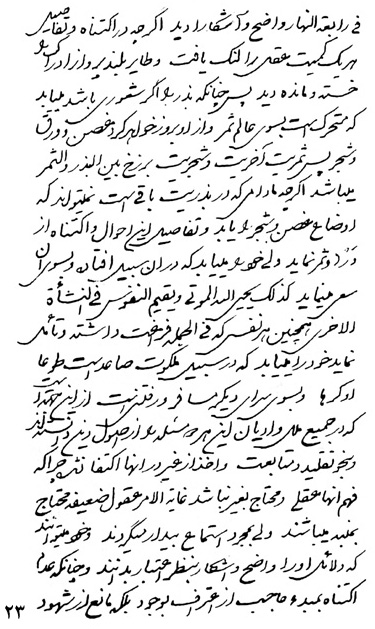 فی رابعة النهار واضح و آشکارا دید اگرچه در اکتناه و تفاصیل
هر یک کمیت عقل را لنگ یافت و طایر بلند پرواز ادراک را
خسته و مانده دید پس چنانکه بذر را اگر شعوری باشد میابد
که متحرک است بسوی عالم ثمر و از او بروز خواهد کرد غصن و ورق
و شجر پس ثمریت آخریت و شجریت برزخ بین البذر و الثمر
میباشد اگرچه مادامی که در بذریت باقی است نمیتواند که
اوضاع غصن و شجر را یابد و تفاصیل این احوال و اکتناه از
ثمر نماید ولی خود را میابد که در آن سبیل افتان و بسوی آن
سعی مینماید کذلک یحیی الله الموتی و یقیم النفوس فی النشأة
الاخری همچنین هر نفسی که فی الجمله فراغت داشته و تأمل
نماید خود را میابد که در سبیل ملکوت صاعد است طوعا
او کرها و بسوی سرای دیگر مسافر و رفتنی است از این جهت است
که در جمیع ملل و ادیان این هر سه مسئله را از اصول دین دانسته‌اند
و بمجرد تقلید و متابعت و اخذ از غیر در آنها اکتفا نشده چرا که
فهم آنها عقلی و محتاج بغیر نباشد غایة الامر عقول ضعیفه محتاج
بممد میباشند ولی بمجرد استماع بیدار میگردند و خود میتوانند
که دلائل او را واضح و آشکار بنظر اعتبار بدانند و چنانکه عدم
اکتناه بمبدء حاجب از اعتراف بوجود بلکه مانع از شهود
٢٣